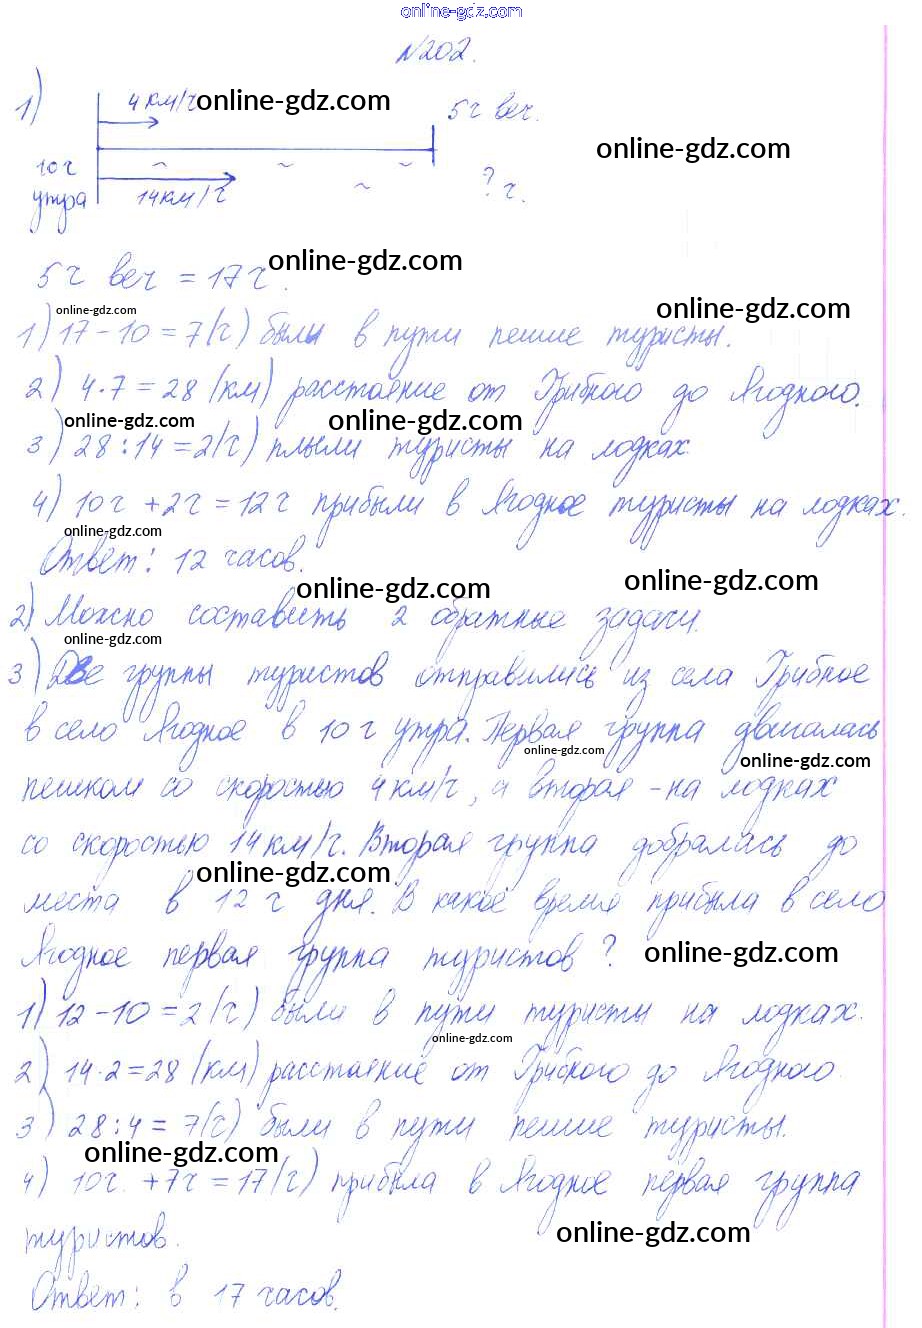 online-gdz.com
№202.
1) 4 км/ч online-gdz.com 5 ч веч.
online-gdz.com
10 ч
утра 14 км/ч ? ч.
online-gdz.com
5 ч веч = 17 ч.
online-gdz.com
online-gdz.com
1) 17 - 10 = 7 (ч) были в пути пешие туристы.
2) 4 · 7 = 28 (км) расстояние от Грибного до Ягодного.
online-gdz.com online-gdz.com
3) 28 : 14 = 2 (ч) плыли туристы на лодках.
4) 10 ч + 2 ч = 12 ч прибыли в Ягодное туристы на лодках.
online-gdz.com
Ответ: 12 часов.
online-gdz.com online-gdz.com
2) Можно составить 2 обратные задачи.
online-gdz.com
3) Две группы туристов отправились из села Грибное
в село Ягодное в 10 ч утра. Первая группа двигалась
online-gdz.com online-gdz.com
пешком со скоростью 4 км/ч, а вторая - на лодках
со скоростью 14 км/ч. Вторая группа добралась до
online-gdz.com
места в 12 ч дня. В какое время прибыла в село
Ягодное первая группа туристов? online-gdz.com
1) 12 - 10 = 2 (ч) были в пути туристы на лодках.
online-gdz.com
2) 14 · 2 = 28 (км) расстояние от Грибного до Ягодного.
3) 28 : 4 = 7 (ч) были в пути пешие туристы.
online-gdz.com
4) 10 ч. + 7 ч = 17 (ч) прибыла в Ягодное первая группа
туристов. online-gdz.com
Ответ: в 17 часов.